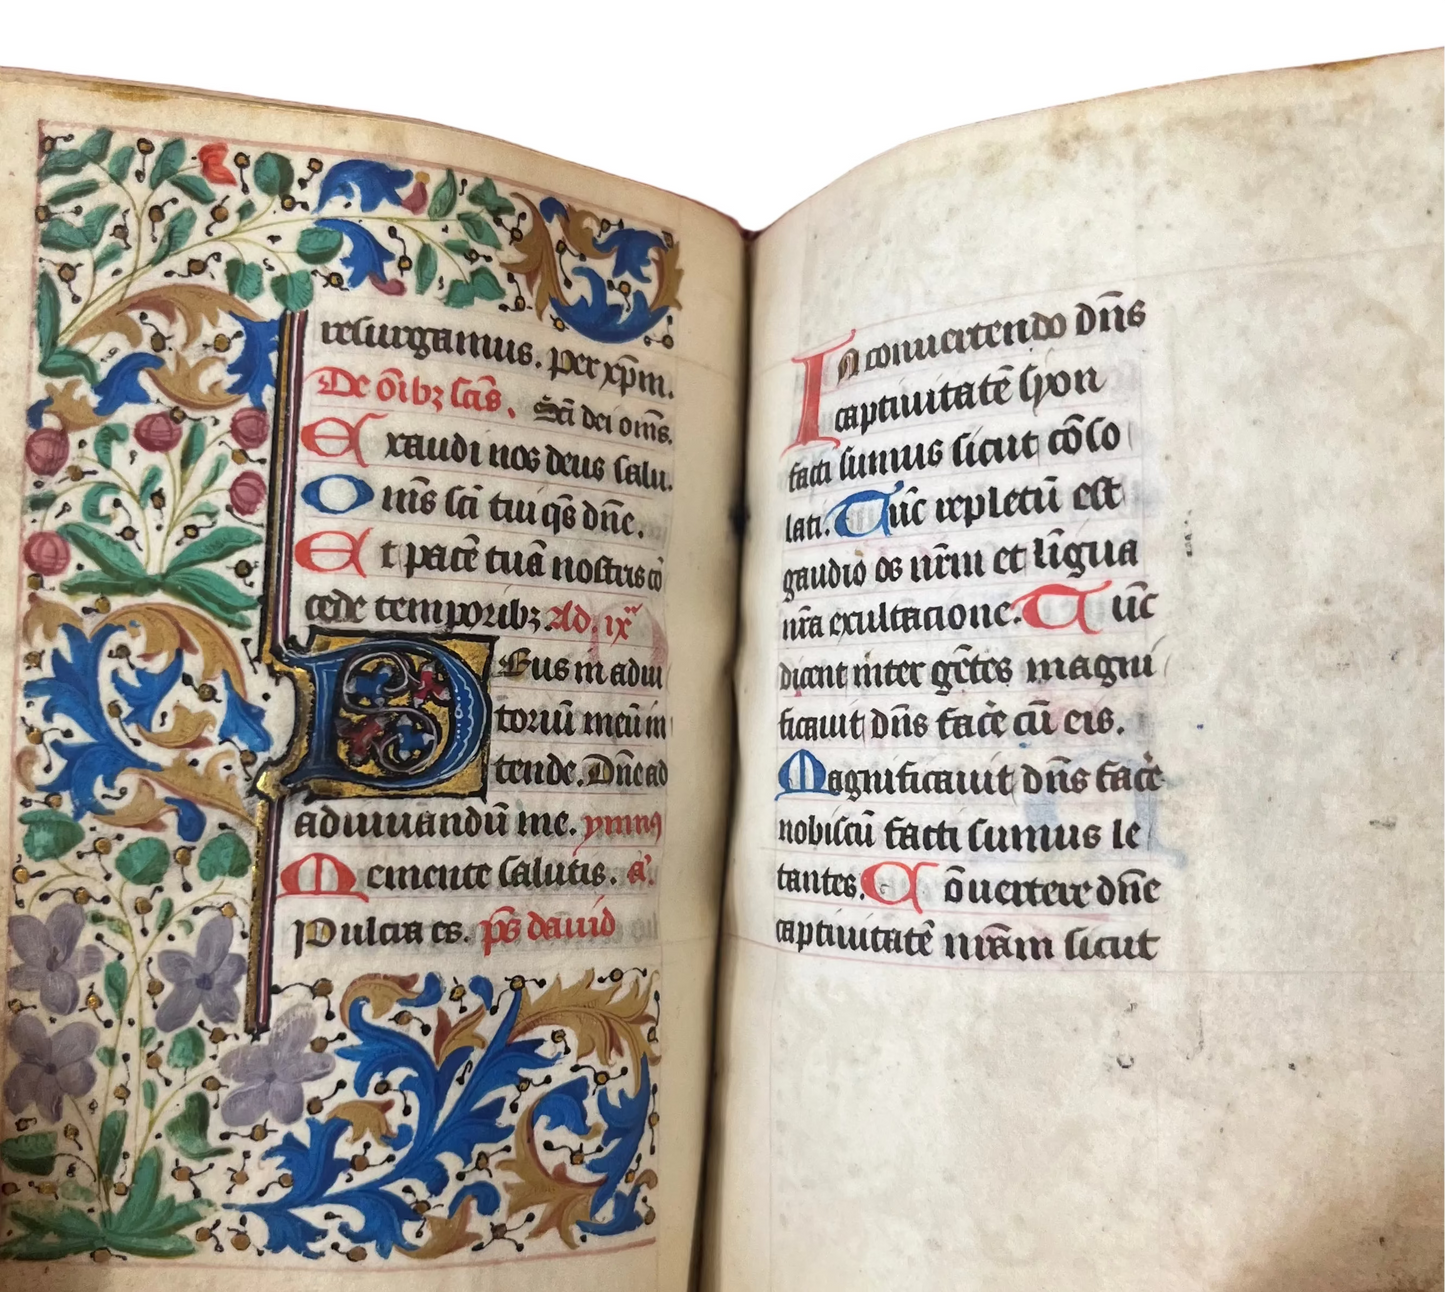 resurgamus. per xp̄m.
De oībꝫ scīs. Sc̄i dei om̄s.
Exaudi nos deus salu.
Om̄s sc̄i tui qs̄ dn̄e.
Et pacē tuā nostris cō
cede temporibꝫ. Ad. ix
Deus in adiu
toriū meū in
tende. Dn̄e ad
adiuuandū me. ymnꝰ
Memente salutis. a'.
Pulcra es. ps̄ dauid
In conuertendo dn̄s
captiuitatē syon
facti sumus sicut cōso
lati. Tūc repletū est
gaudio os nr̄m et līgua
nr̄a exultacione. Tūc
dicent inter gētes magni
ficauit dn̄s facē cū eis.
Magnificauit dn̄s facē
nobiscū facti sumus le
tantes. Cōuertere dn̄e
captiuitatē nr̄am sicut